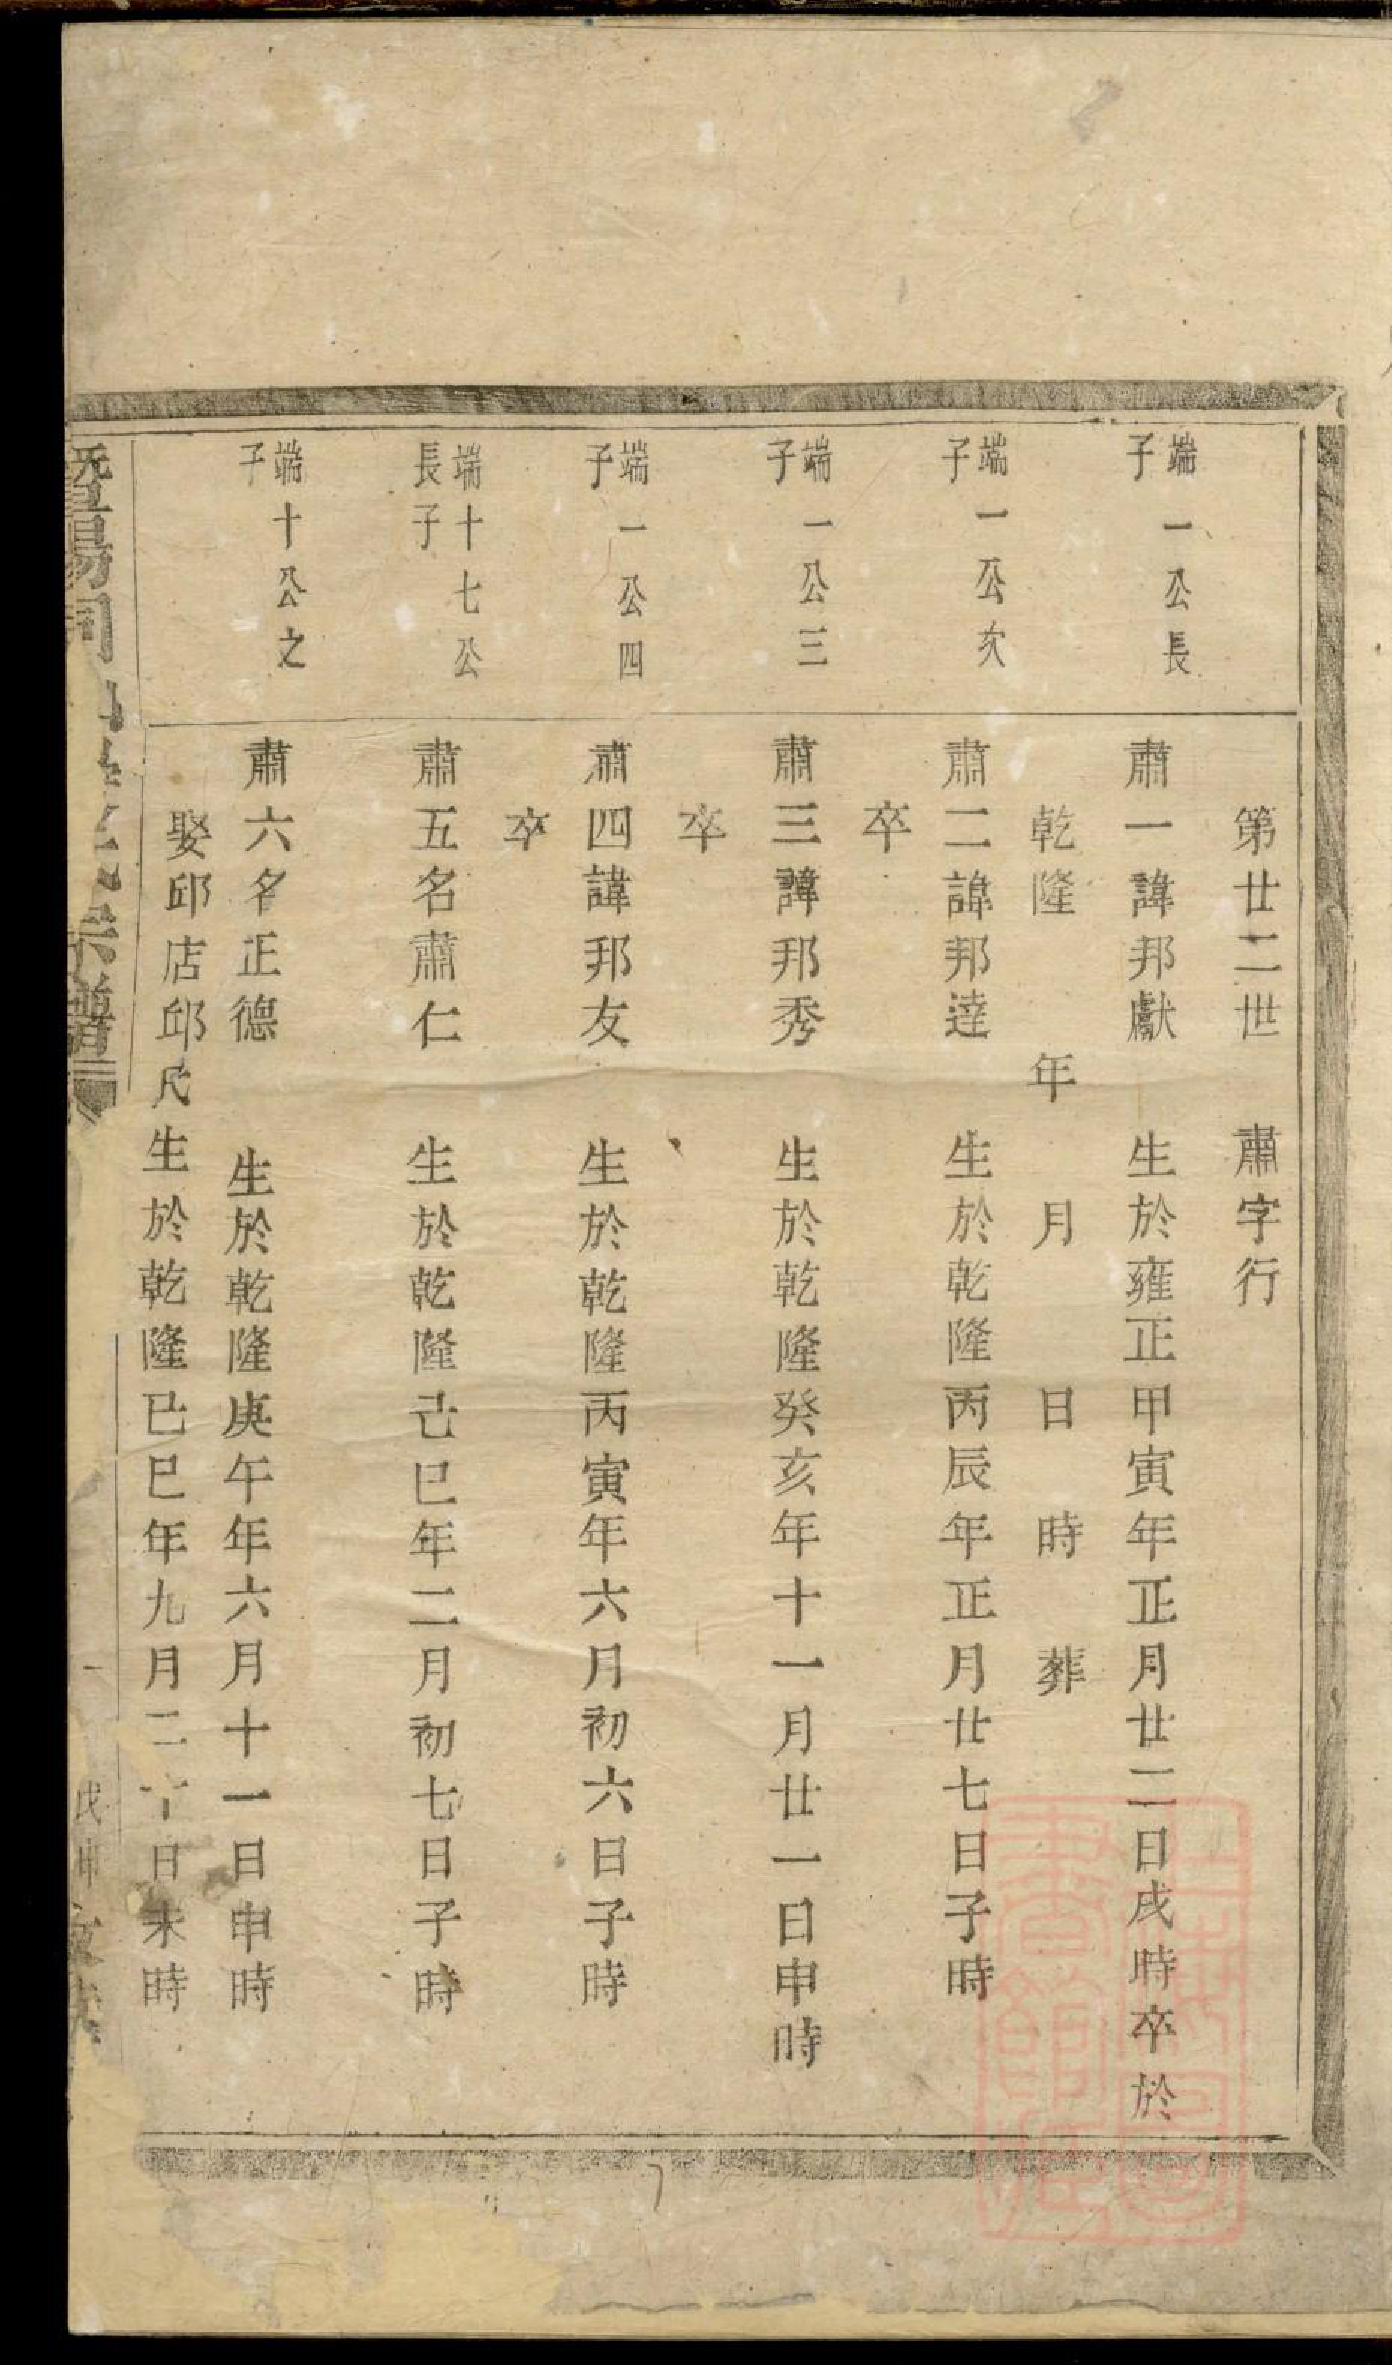 第廿二世 肅字行
端一公長
子
肅一諱邦獻 生於雍正甲寅年正月廿二日戌時卒於
乾隆 年 月 日 時 葬
端一公次
子
肅二諱邦達 生於乾隆丙辰年正月廿七日子時
卒
端一公三
子
肅三諱邦秀 生於乾隆癸亥年十一月廿一日申時
卒
端一公四
子
肅四諱邦友 生於乾隆丙寅年六月初六日子時
卒
端十七公
長子
肅五名肅仁 生於乾隆己巳年二月初七日子時
端十公之
子
肅六名正德 生於乾隆庚午年六月十一日申時
娶邱店邱氏生於乾隆已巳年九月二十日未時
暨陽同山 宗譜